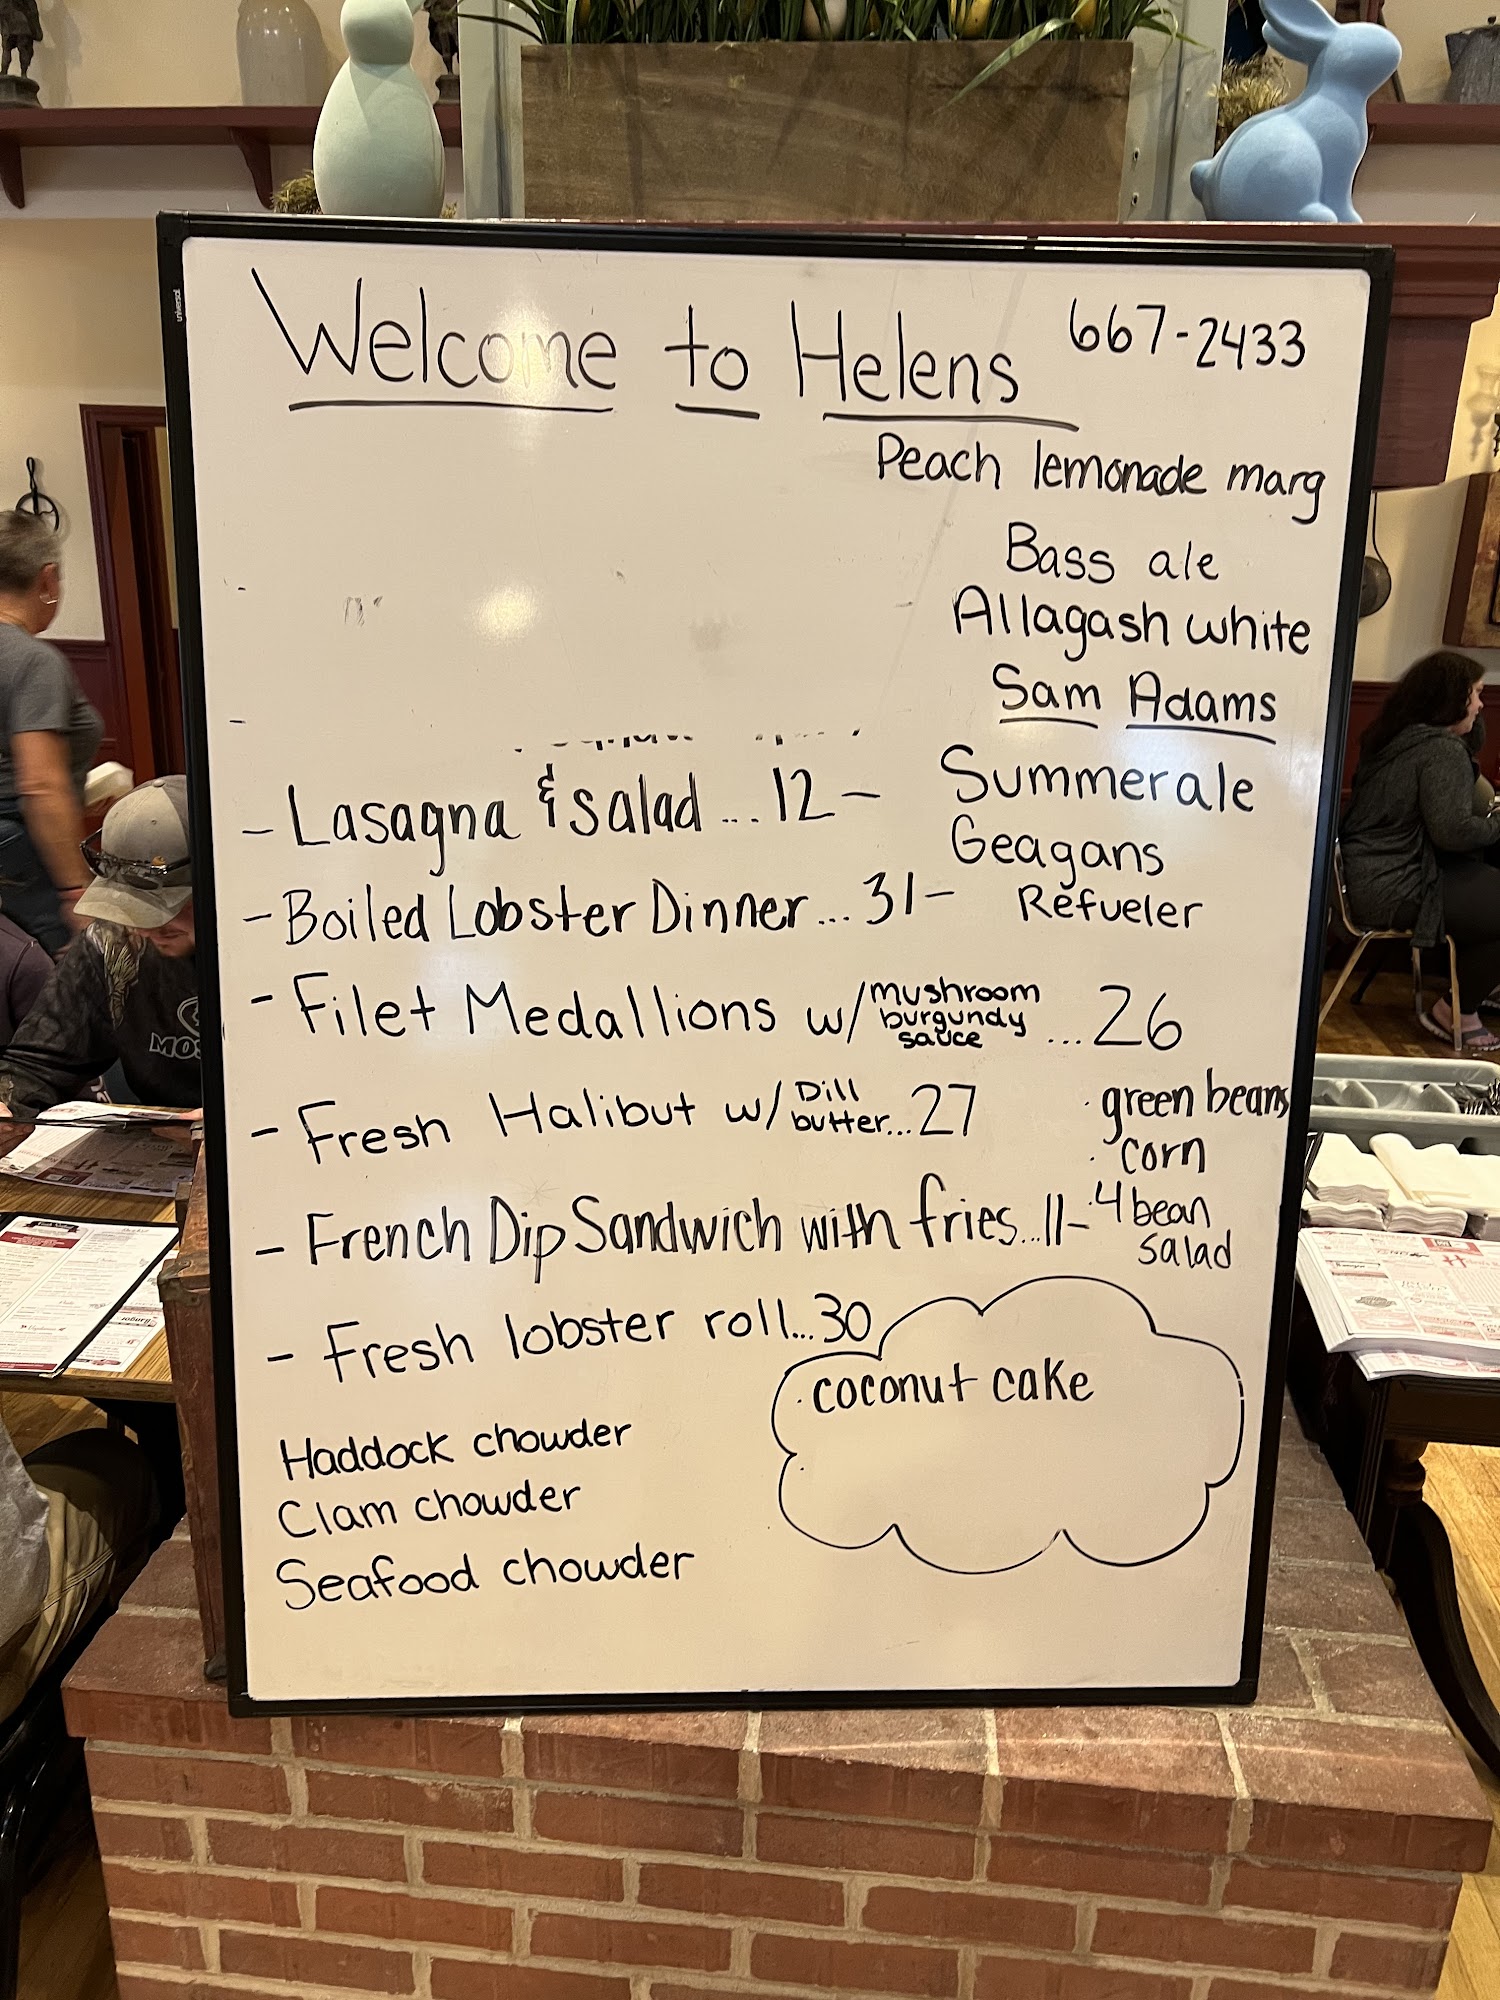 Welcome to Helens 667-2433
Peach lemonade marg
Bass ale
Allagash white
Sam Adams
Summer ale
Geagans
Refueler
- Lasagna & Salad ... 12-
- Boiled Lobster Dinner ... 31-
- Filet Medallions w/ mushroom
burgundy
sauce ... 26
- Fresh Halibut w/ Dill
butter ... 27
- French Dip Sandwich with fries ... 11-
· green beans
· corn
· 4 bean
salad
- Fresh lobster roll ... 30
· coconut cake
Haddock chowder
Clam chowder
Seafood chowder
universal